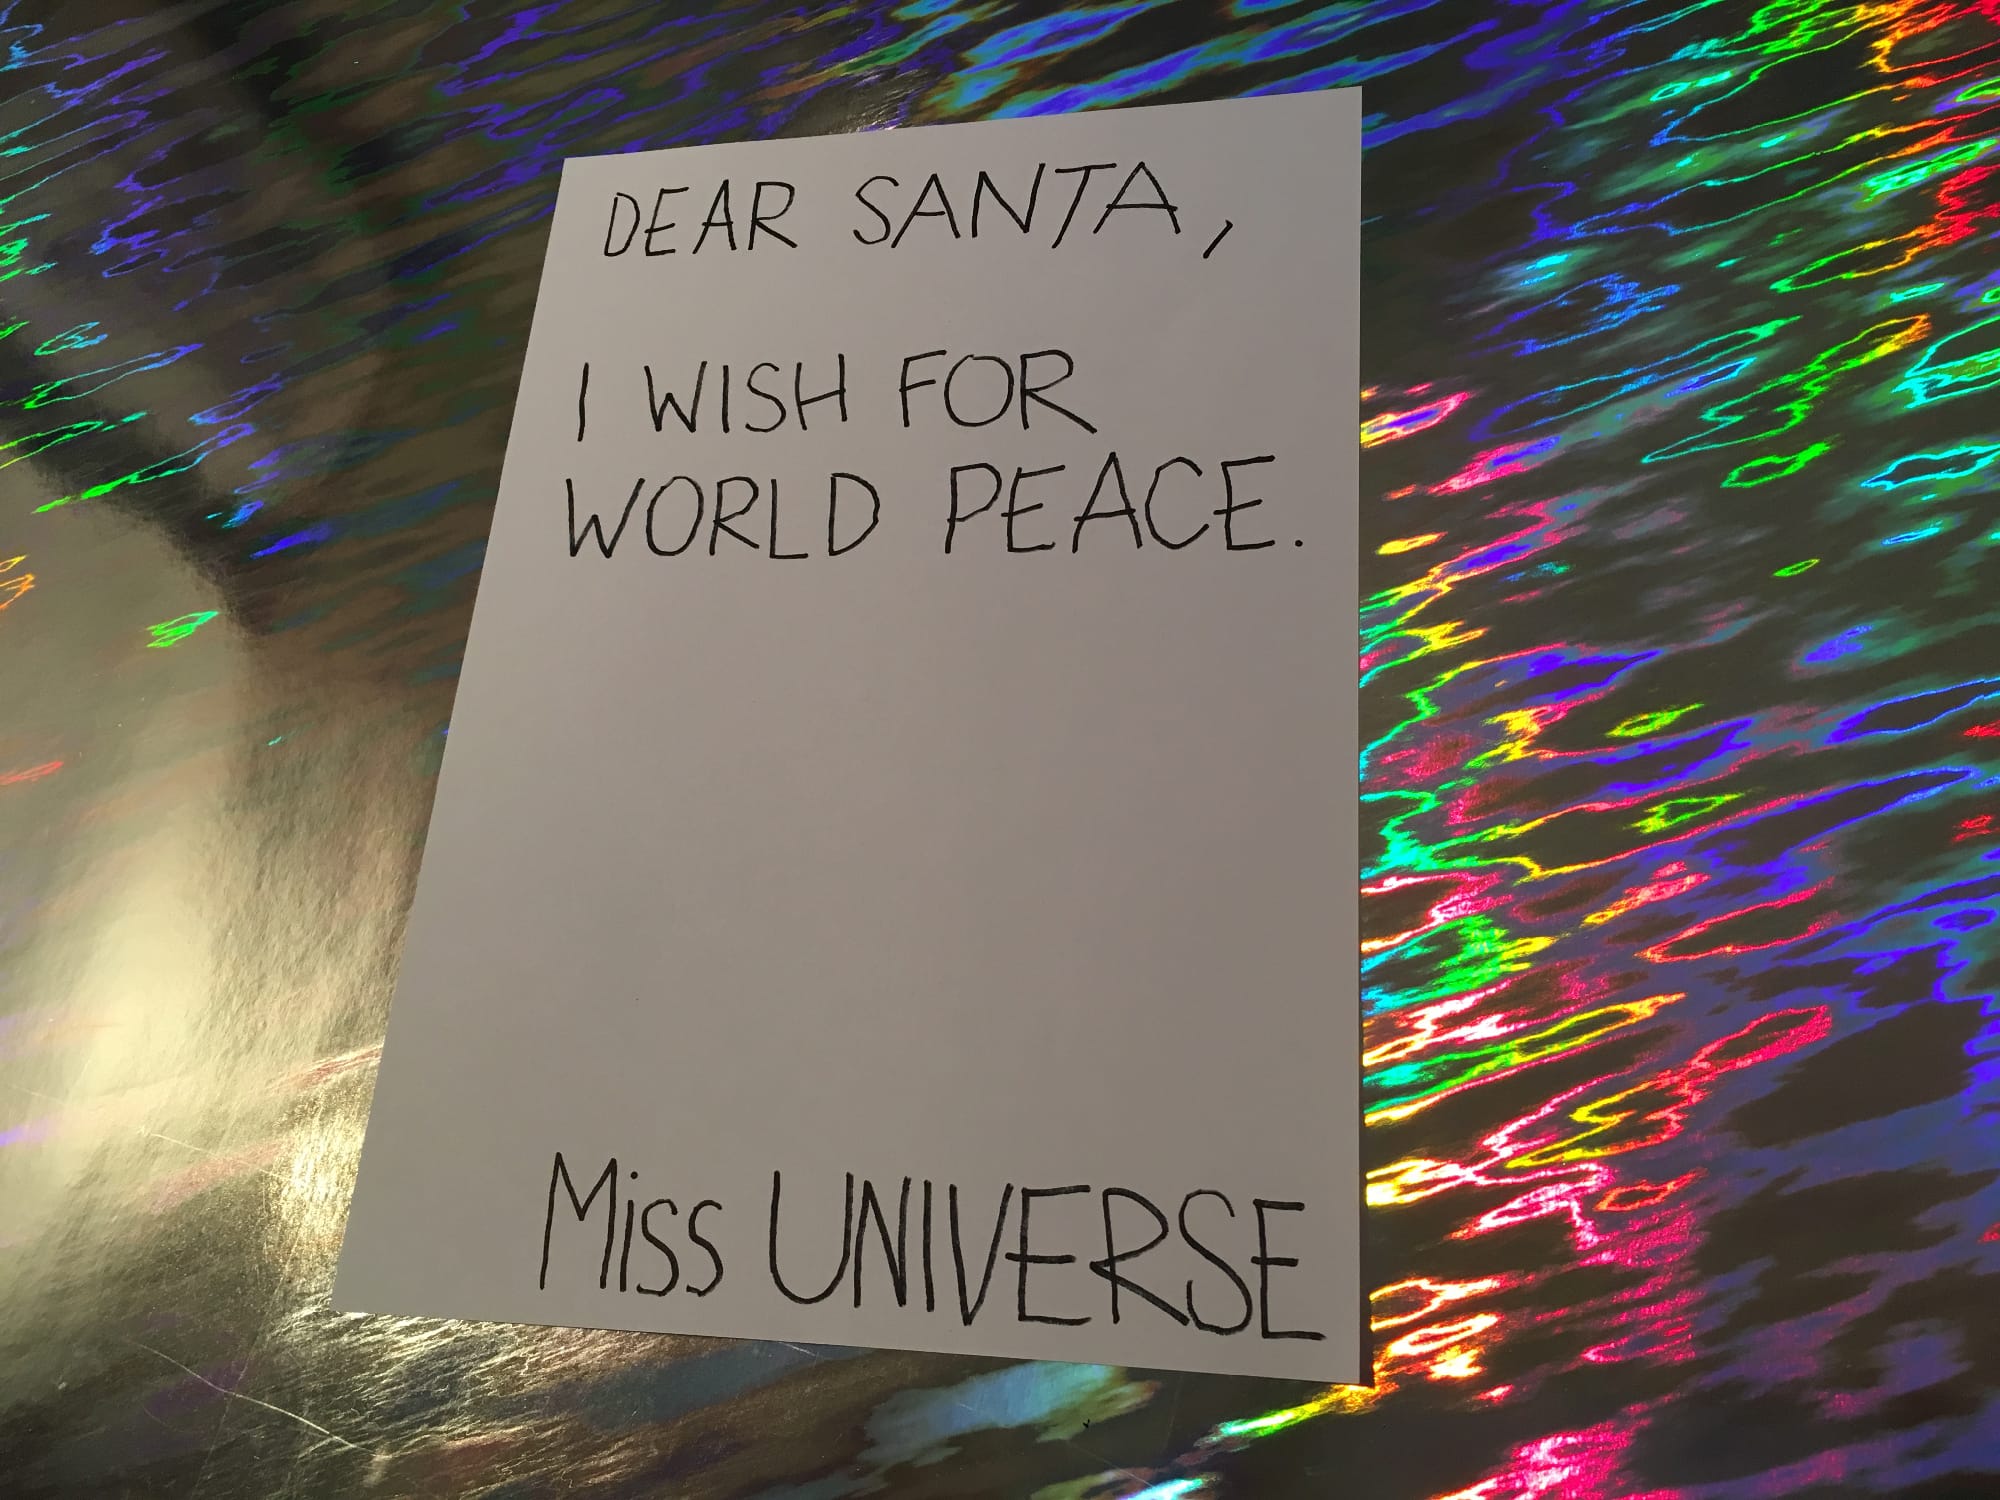 DEAR SANTA,
I WISH FOR
WORLD PEACE.
Miss UNIVERSE